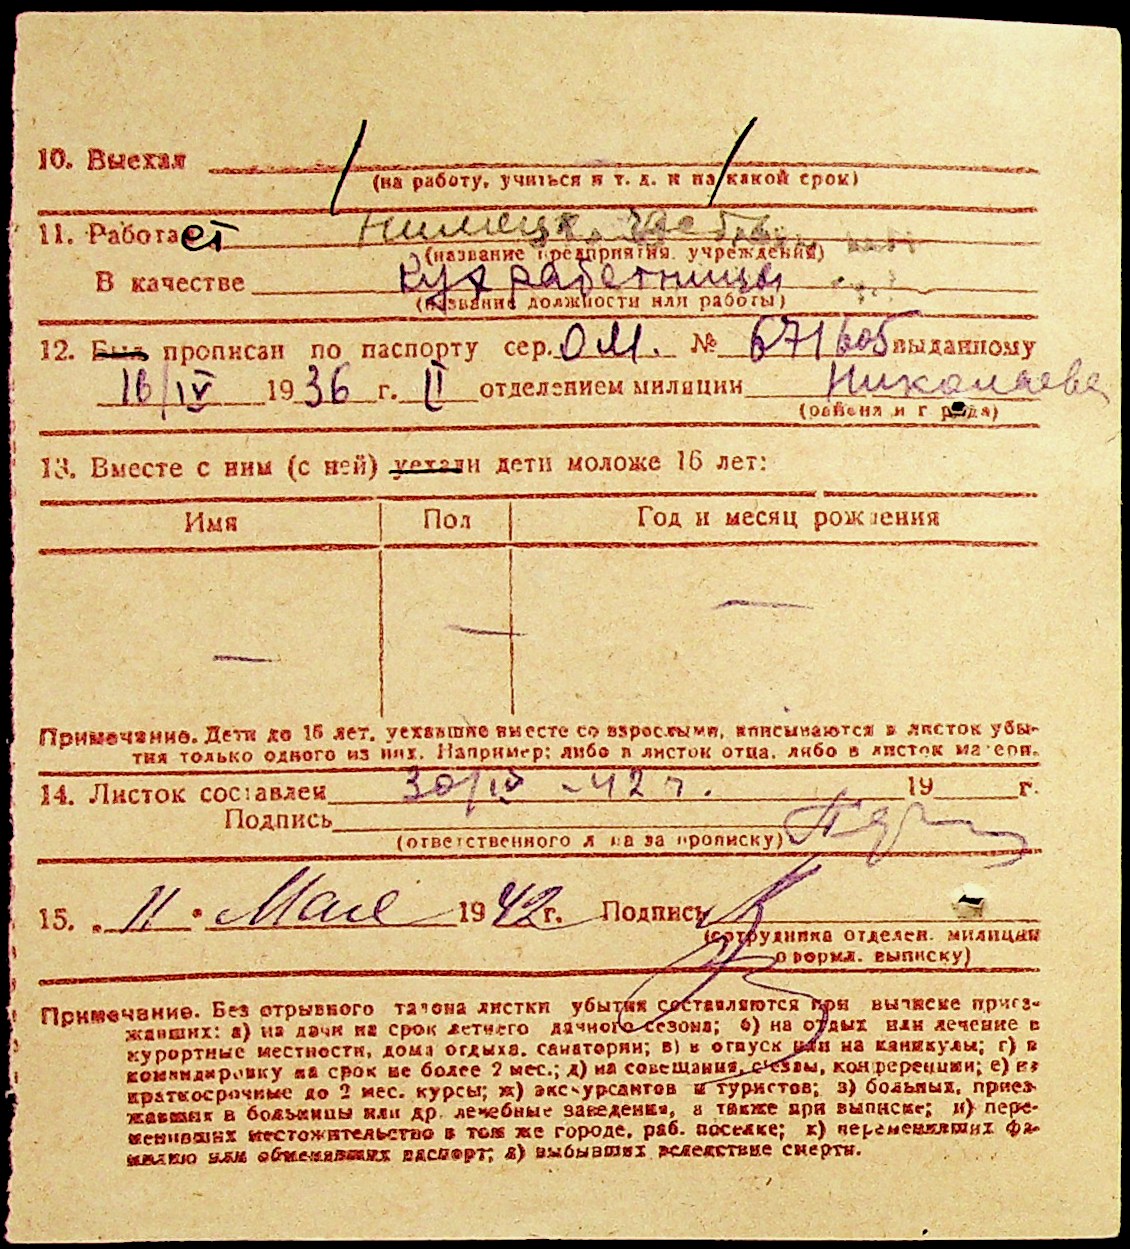 10. Выехал
(на работу, учиться и т. д. и на какой срок)
11. Работает
(название предприятия, учреждения)
В качестве кух работницы
(название должности или работы)
12. Был прописан по паспорту сер. ОМ. № 671605 выданному
16/IV 1936 г. II отделением милиции Николаева
(района и города)
13. Вместе с ним (с ней) уехали дети моложе 16 лет:
Имя Пол Год и месяц рождения
Примечание. Дети до 16 лет, уехавшие вместе со взрослыми, вписываются в листок убы-
тия только одного из них. Например: либо в листок отца, либо в листок матери.
14. Листок составлен 30/IV -42 г. 19 г.
Подпись
(ответственного лица за прописку)
15. „ 11 " Мая 1942 г. Подпись
(сотрудника отделен. милиции
оформл. выписку)
Примечание. Без отрывного талона листки убытия составляются при выписке приез-
жавших: а) на дачи на срок летнего дачного сезона; б) на отдых или лечение в
курортные местности, дома отдыха, санатории; в) в отпуск или на каникулы; г) в
командировку на срок не более 2 мес.; д) на совещания, съезды, конференции; е) на
краткосрочные до 2 мес. курсы; ж) экскурсантов и туристов; з) больных, приез-
жавших в больницы или др. лечебные заведения, а также при выписке; и) пере-
менивших местожительство в том же городе, раб. поселке; к) переменивших фа-
милию или обменявших паспорт; л) выбывших вследствие смерти.